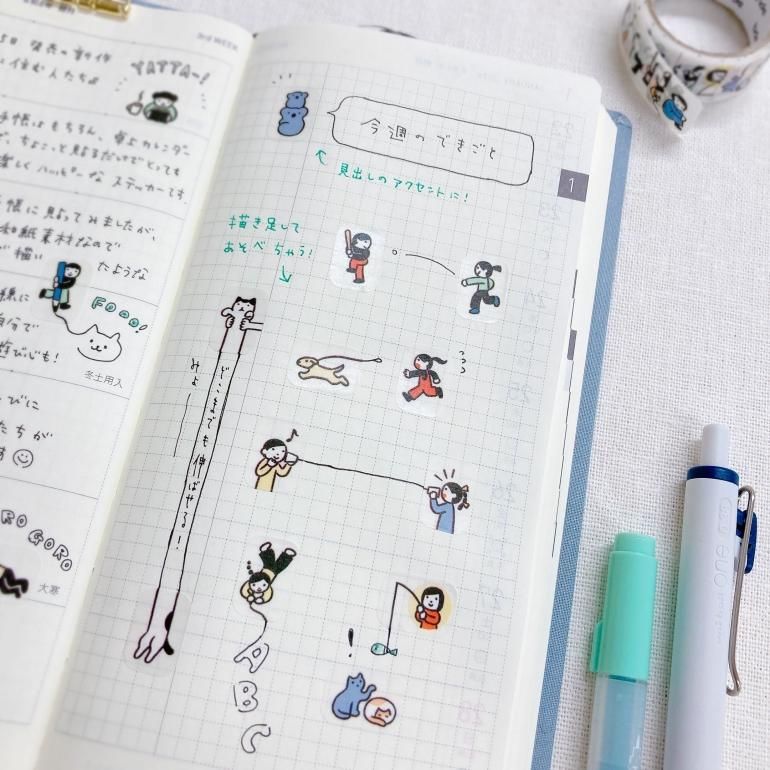 3rd WEEK
5日 発売の新作
に住む人たち♪
YATTA〜!
手帳はもちろん、卓上カレンダー
で、ちょこっと貼るだけでとっても
楽しくハッピーな ステッカーです。
帳に貼ってみましたが、
和紙素材なので
で描い
たような
様に
自分で
遊び心も!
Fooo!
冬土用入
びに
たちが
す☺
ROGORO
大寒
今週のできごと
↖ 見出しのアクセントに!
1
描き足して
あそべちゃう!
↓
どこまでも伸ばせる!
みょ
♪
!
A
B
C